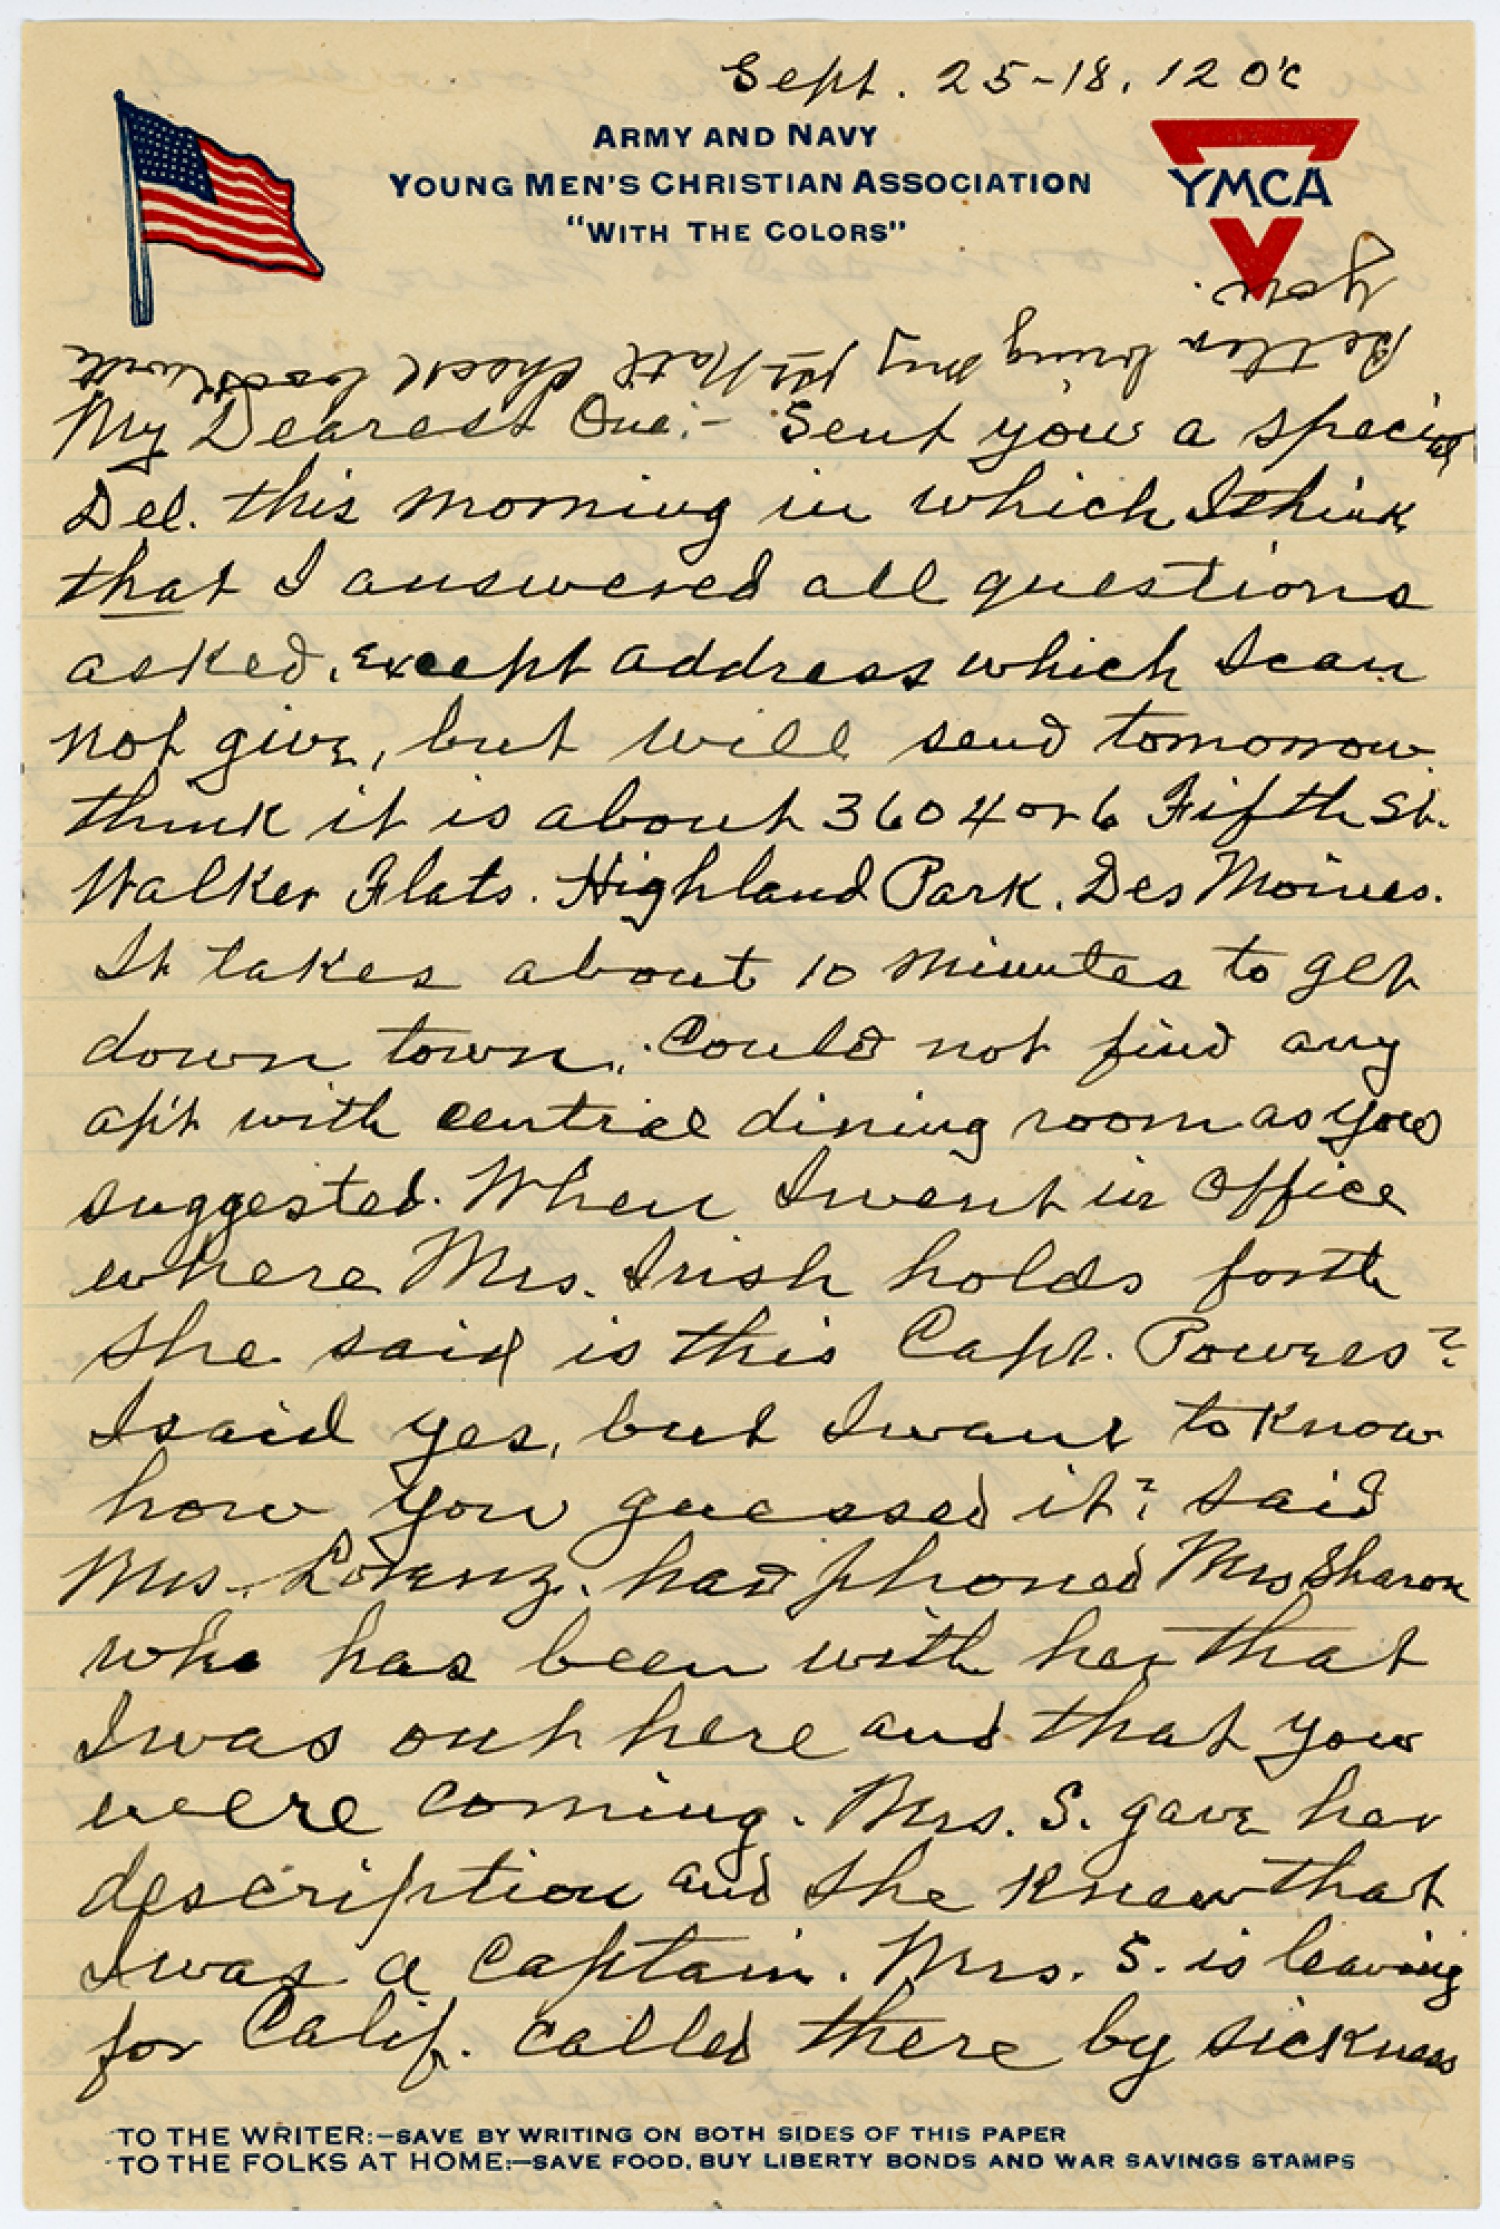 Sept. 25-18. 12 O'c
ARMY AND NAVY
YOUNG MEN'S CHRISTIAN ASSOCIATION
"WITH THE COLORS"
YMCA
Better bring my 1st Natl check book with
you.
My Dearest One:- Sent you a special
Del. this morning in which I think
that I answered all questions
asked, except address which I can
not give, but will send tomorrow
think it is about 3604 or 6 Fifth St.
Walker Flats. Highland Park. Des Moines.
It takes about 10 minutes to get
down town. Could not find any
ap't with central dining room as you
suggested. When I went in Office
where Mrs. Irish holds forth
she said is this Capt. Powers?
I said yes, but I want to know
how you guessed it? said
Mrs. Lorenz. had phoned Mrs Sharon
who has been with her that
I was out here and that you
were coming. Mrs. S. gave her
description and she knew that
I was a Captain. Mrs. S. is leaving
for Calif. called there by sickness
TO THE WRITER:-SAVE BY WRITING ON BOTH SIDES OF THIS PAPER
TO THE FOLKS AT HOME:-SAVE FOOD, BUY LIBERTY BONDS AND WAR SAVINGS STAMPS